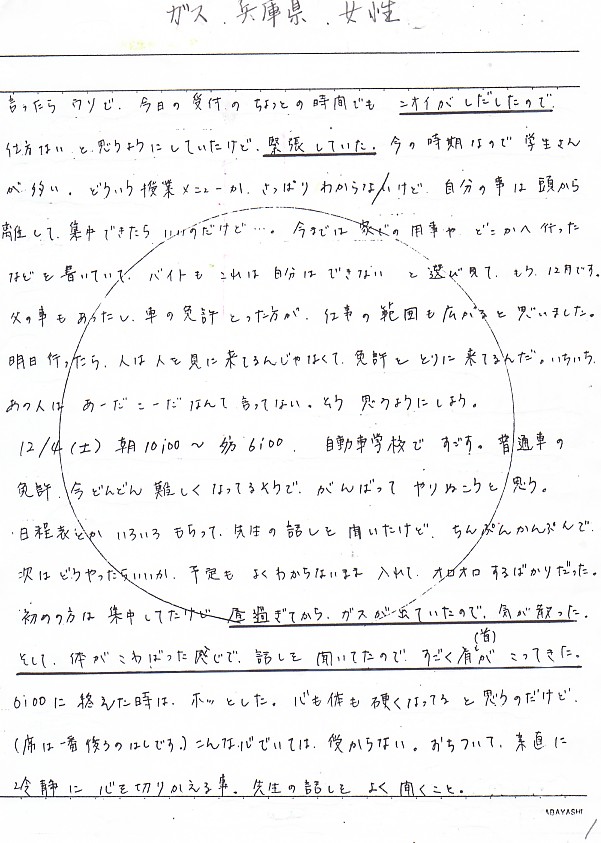 ガス、兵庫県、女性
言ったらウソで、今日の受付のちょっとの時間でもニオイがしだしたので
仕方ないと思うようにしていたけど、緊張していた。今の時期なので学生さん
が多い。どういう授業メニューか、さっぱりわからないけど、自分の事は頭から
離して、集中できたらいいのだけど…。今までは家での用事や、どこかへ行った
などを書いていて、バイトもこれは自分はできないと選び見て、もう、12月です。
父の事もあったし、車の免許とった方が、仕事の範囲も広がると思いました。
明日行ったら、人は人を見に来てるんじゃなくて、免許をとりに来てるんだ。いちいち、
あの人はあーだこーだなんて言ってない。そう思うようにしよう。
12/4(土) 朝10:00〜夕6:00 自動車学校ですごす。普通車の
免許、今どんどん難しくなってるそうで、がんばってやりぬこうと思う。
日程表とかいろいろもらって、先生の話しを聞いたけど、ちんぷんかんぷんで、
次はどうやったらいいか、予定もよくわからないまま入れて、オロオロするばかりだった。
初めの方は集中してたけど、昼過ぎてから、ガスが出ていたので、気が散った。
そして、体がこわばった感じで、話しを聞いてたので、すごく肩(首)がこってきた。
6:00に終えた時は、ホッとした。心も体も硬くなってると思うのだけど、
(席は一番後ろのはしです。)こんな心でいては、受からない。おちついて、素直に
冷静に心を切りかえる事。先生の話しをよく聞くこと。
ABAYASHI
1